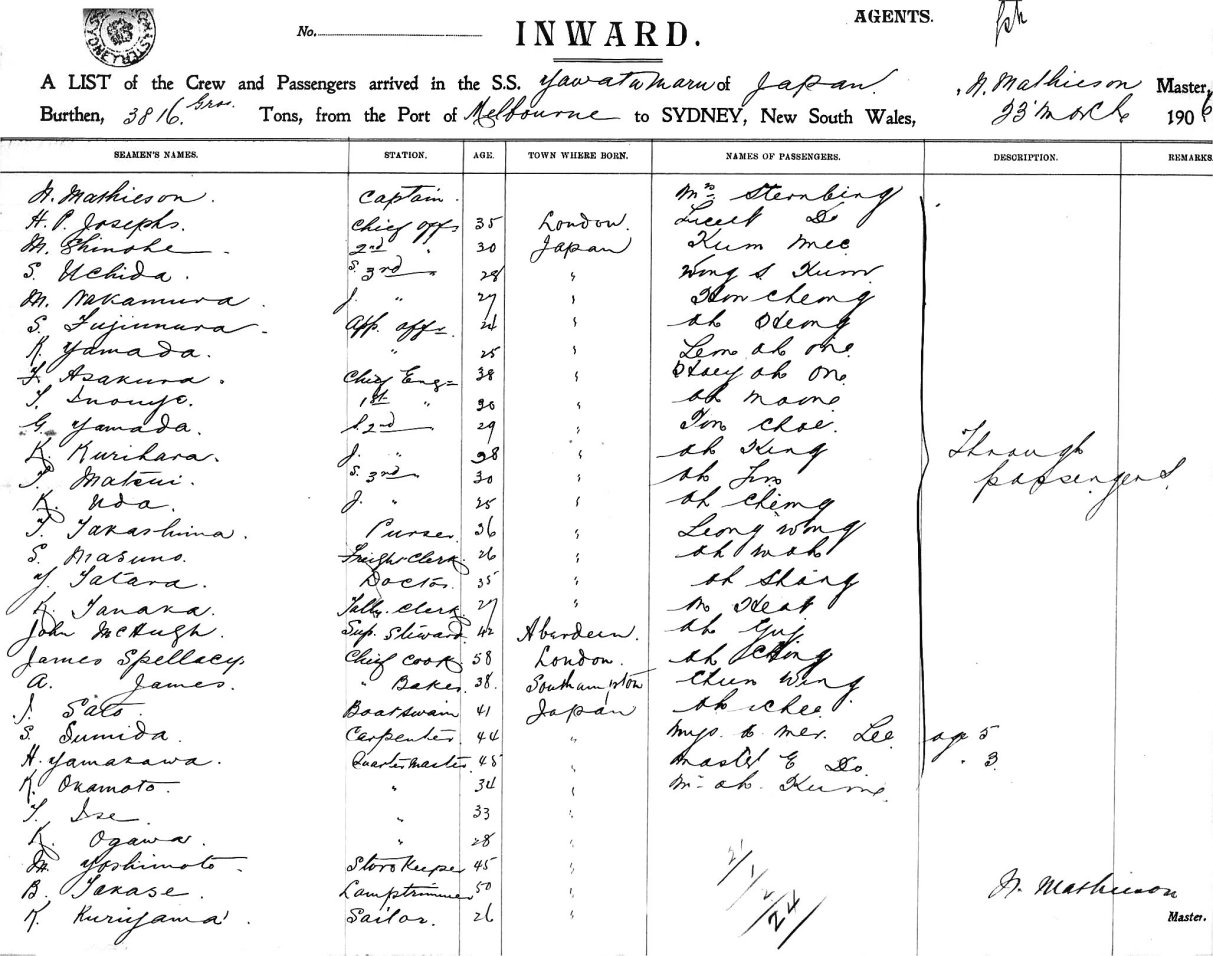 No. AGENTS.
INWARD.
A LIST of the Crew and Passengers arrived in the S.S. Yawata Maru of Japan. Mathieson Master,
Burthen, 3816 Gros. Tons, from the Port of Melbourne to SYDNEY, New South Wales, 23 March 1906
SEAMEN'S NAMES. STATION. AGE. TOWN WHERE BORN. NAMES OF PASSENGERS. DESCRIPTION. REMARKS.
Mathieson. Captain. Mrs
H. P. Josephs. Chief Off 35 London. Lieut Do
M. 2nd " 30 Japan Kum Mee
S. Uchida. S. 3rd " 28 " Wong S Kum
M. Nakamura. J. " 27 " Hon Cheong
S. App. Off 24 " Ah
K. Yamada. " 25 " Ah One
Asakura. Chief Eng 38 " Ah One
Inouye. 1st " 30 " Ah
G. Yamada. S. 2nd 29 " Choe.
K. Kurihara. J. " 28 " Ah King Through
Matsui. S. 3rd " 30 " Ah passengers.
K. Uda. J. " 25 " Ah
T. Takashima. Purser 36 " Leong Wong
S. Masuno. Freight Clerk 26 " Ah Wah
Y. Tatara. Doctor. 35 " Ah Shang
K. Tanaka. Tally Clerk 27 "
John McHugh. Sup. Steward 42 Aberdeen. Ah
James Spellacy. Chief Cook 58 London. Ah
A. James. " Baker 38. Southampton Chun Wing
Sato. Boatswain 41 Japan Ah Chee
S. Sumida. Carpenter 44 " Lee age 5
H. Yamazawa. Quartermaster. 45 " Master E Do. " 3
K. Okamoto. " 34 " Ah
Ise. " 33 "
K. Ogawa. " 28 "
M. Yoshimoto. Storekeeper 45 "
B. Takase. Lamptrimmer 50 " Mathieson
K. Kuriyama. Sailor. 26 " Master.
24